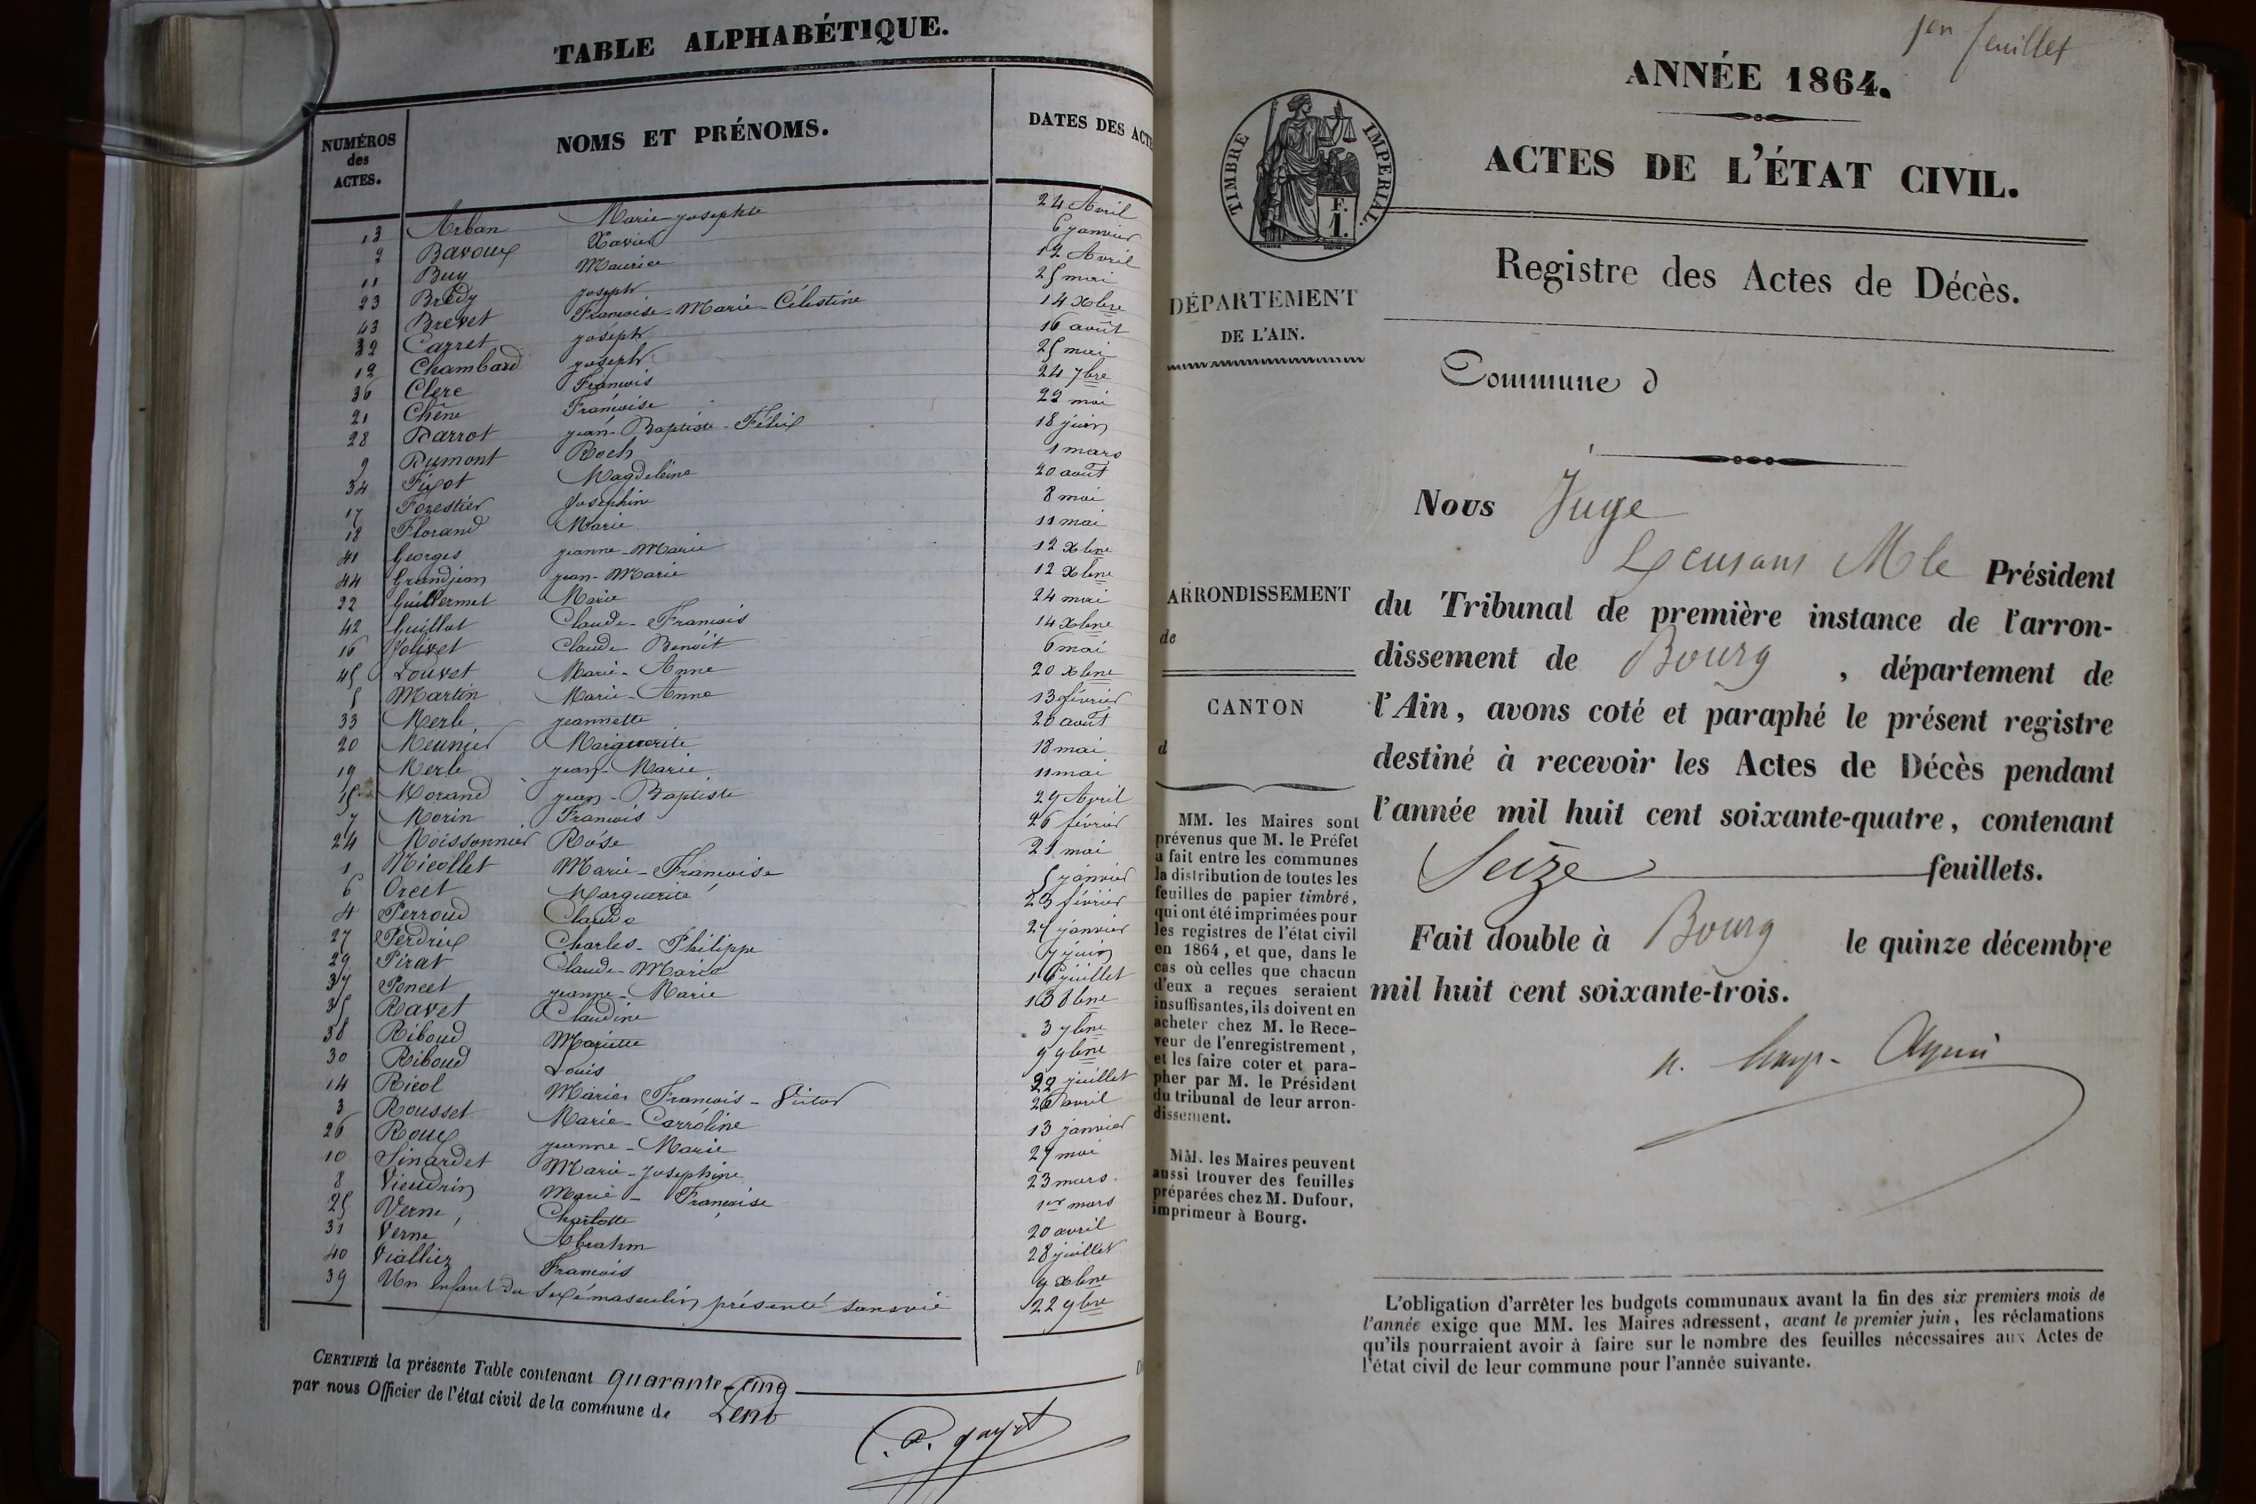 TABLE ALPHABÉTIQUE.
NUMÉROS
des
ACTES.
NOMS ET PRÉNOMS.
DATES DES ACTE
13 Arban Marie-josephte 24 Avril
2 Bavoux Xavier 6 janvier
11 Buy Maurice 12 Avril
23 Brédy joseph 25 mai
43 Brevet Francoise-Marie-Célestine 14 Xbre
32 Cazret joseph 16 août
12 Chambard joseph 25 mai
36 Clerc Francois 24 7bre
21 Chêne Francoise 22 mai
28 Darrot jean-Baptiste-Félix 18 juin
9 Dumont Roch 1 mars
34 Figot Magdeleine 20 août
17 Forestier Josephine 8 mai
18 Florand Marie 11 mai
41 Georges jeanne-Marie 12 Xbre
44 Grandjean jean-Marie 12 Xbre
22 Guillermet Marie 24 mai
42 Guillot Claude-Francois 14 Xbre
16 Jolivet Claude Benoit 6 mai
45 Louvet Marie-Anne 20 Xbre
5 Martin Marie-Anne 13 février
33 Merle jeannette 20 août
20 Meunier Marguerite 18 mai
19 Merle jean-Marie 11 mai
15 Morand jean-Baptiste 29 Avril
7 Morin Francois 26 février
24 Moissonnier Rose 21 mai
1 Micollet Marie-Francoise 5 janvier
6 Orcet Marguerite 23 février
4 Perroud Claude 27 janvier
27 Perdrix Charles-Philippe 7 juin
29 Pirat Claude-Marie 16 juillet
37 Poncet jeanne-Marie 13 8bre
35 Ravet Claudine 3 7bre
38 Riboud Mariette 9 9bre
30 Riboud Louis 22 juillet
14 Ricol Marie Francois-Victor 26 avril
3 Rousset Marie-Carroline 13 janvier
26 Roux jeanne-Marie 27 mai
10 Sinardet Marie-Josephine 23 mars
8 Vieudrin Marie-Francoise 1er mars
25 Verne Charlotte 20 avril
31 Verne Abrahm 28 juillet
40 Vialliez Francois 4 Xbre
39 Un enfant du Sexe masculin présenté sans vie 22 9bre
CERTIFIÉ la présente Table contenant quarante-cinq
par nous Officier de l'état civil de la commune de Lent
1er feuillet
ANNÉE 1864.
TIMBRE IMPÉRIAL.
F.
1.
ACTES DE L'ÉTAT CIVIL.
Registre des Actes de Décès.
DÉPARTEMENT
DE L'AIN.
Commune d
ARRONDISSEMENT
de
CANTON
d
MM. les Maires sont
prévenus que M. le Préfet
a fait entre les communes
la distribution de toutes les
feuilles de papier timbré,
qui ont été imprimées pour
les registres de l'état civil
en 1864, et que, dans le
cas où celles que chacun
d'eux a reçues seraient
insuffisantes, ils doivent en
acheter chez M. le Rece-
veur de l'enregistrement,
et les faire coter et para-
pher par M. le Président
du tribunal de leur arron-
dissement.
MM. les Maires peuvent
aussi trouver des feuilles
préparées chez M. Dufour,
imprimeur à Bourg.
Nous Juge
M le Président
du Tribunal de première instance de l'arron-
dissement de Bourg, département de
l'Ain, avons coté et paraphé le présent registre
destiné à recevoir les Actes de Décès pendant
l'année mil huit cent soixante-quatre, contenant
Seize feuillets.
Fait double à Bourg le quinze décembre
mil huit cent soixante-trois.
L'obligation d'arrêter les budgets communaux avant la fin des six premiers mois de
l'année exige que MM. les Maires adressent, avant le premier juin, les réclamations
qu'ils pourraient avoir à faire sur le nombre des feuilles nécessaires aux Actes de
l'état civil de leur commune pour l'année suivante.